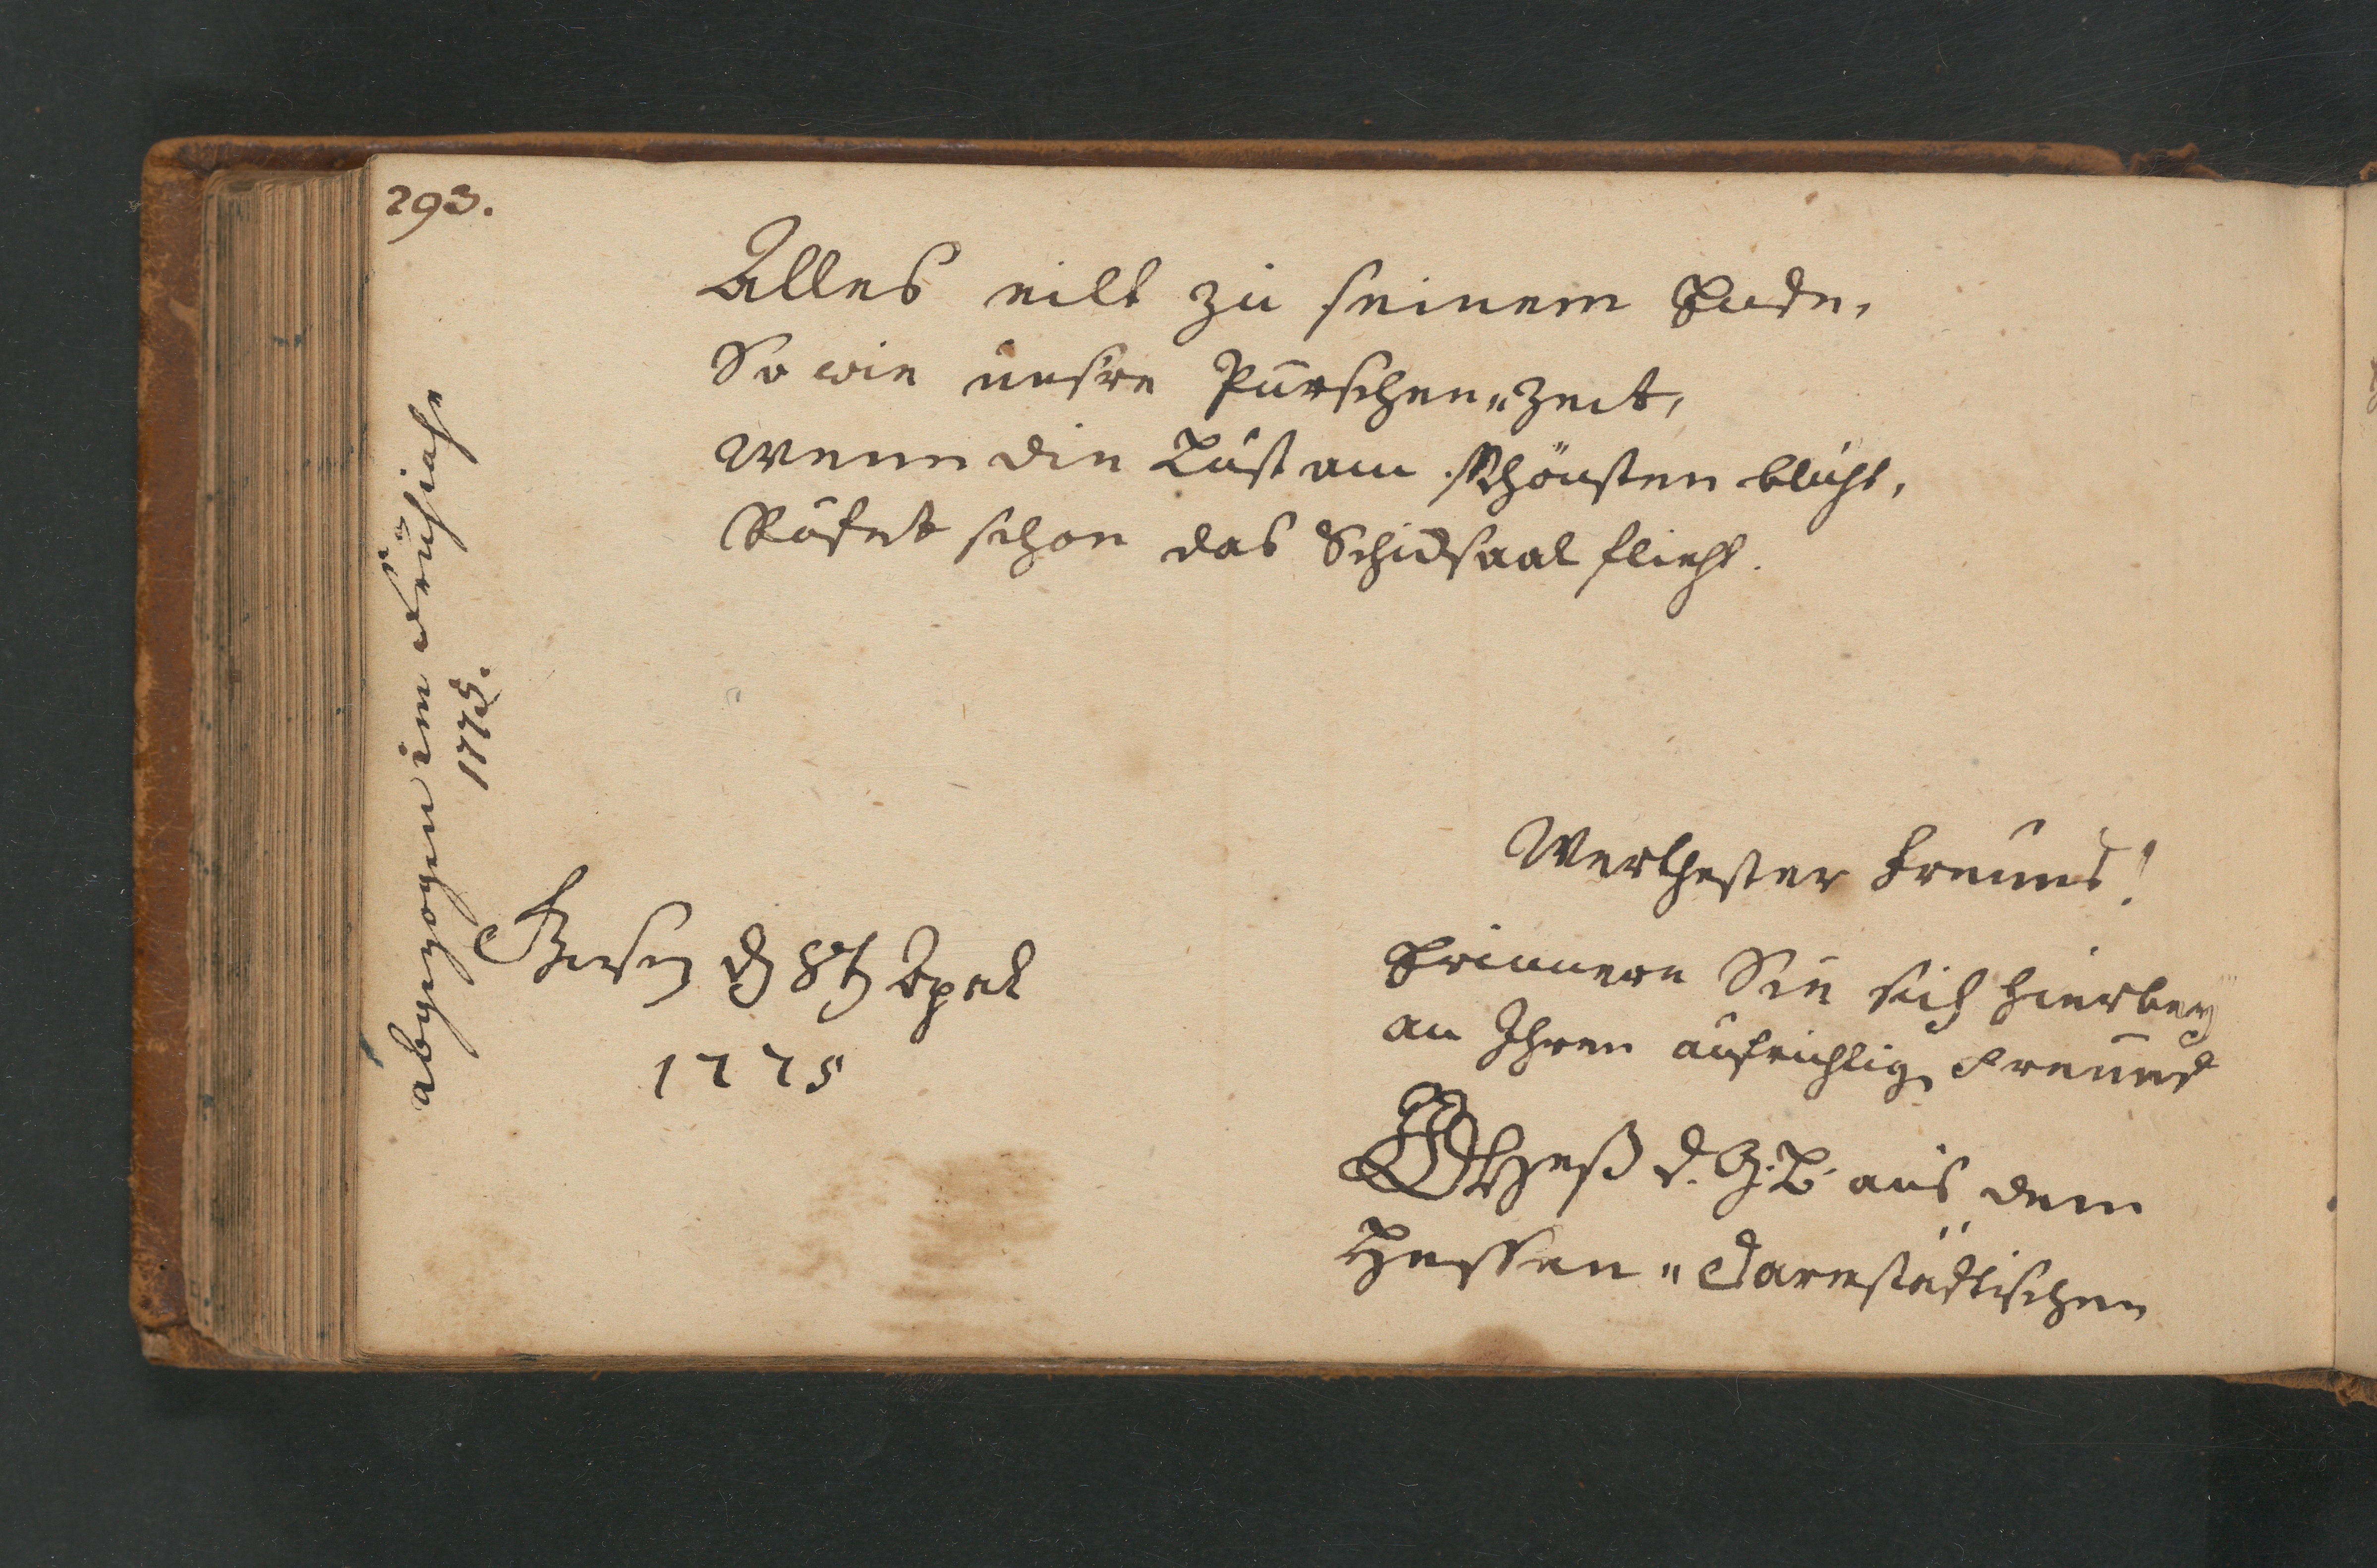 293.
Alles eilt zu seinem Ende,
So wie unsre Purschen„Zeit,
Wenn die Lust am schönsten blüht,
Rufet schon das Schicksaal flieht.
abgezogen im Frühjahr
1775.
Werthester Freund!
Erinnern Sie sich hierbey
an Ihren aufrichtig Freund
Heß d. G. B. aus dem
Hessen„Darmstädtischen
d 8t Aprl
1775